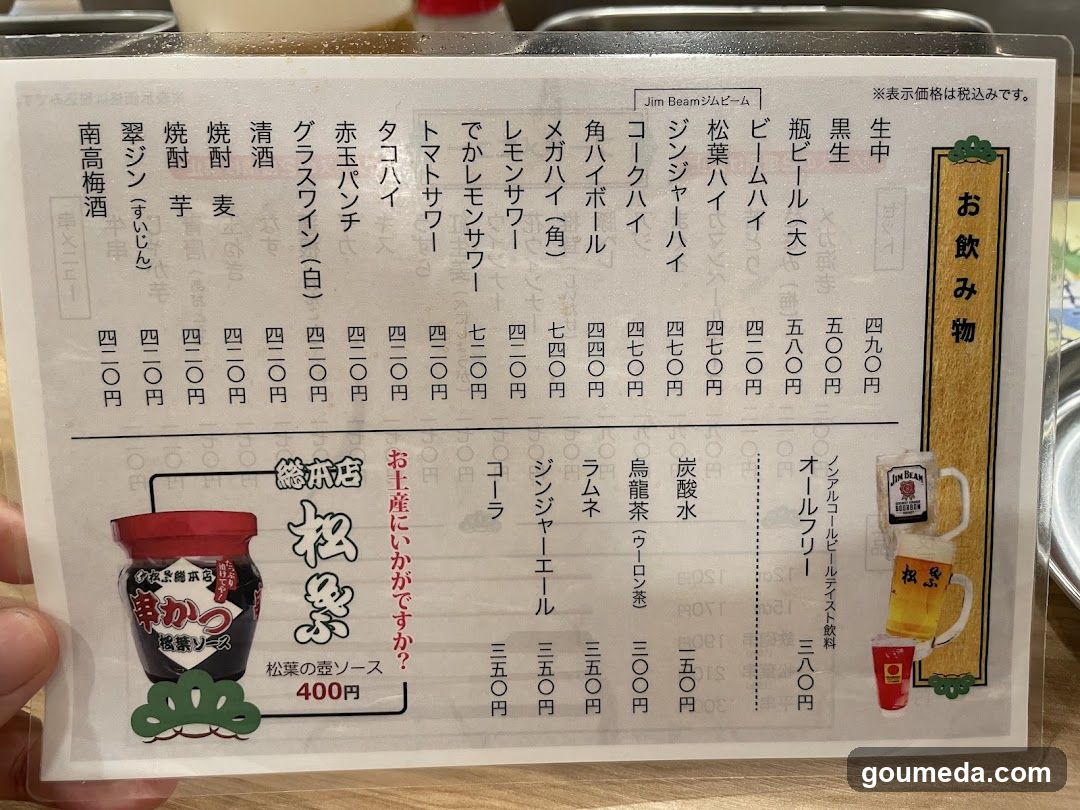 ※表示価格は税込みです。
お飲み物
生中 四九〇円
黒生 五〇〇円
瓶ビール（大） 五八〇円
Jim Beamジムビーム
ビームハイ 四二〇円
松葉ハイ 四七〇円
ジンジャーハイ 四七〇円
コークハイ 四七〇円
角ハイボール 四四〇円
メガハイ（角） 七四〇円
レモンサワー 四二〇円
でかレモンサワー 七二〇円
トマトサワー 四二〇円
タコハイ 四二〇円
赤玉パンチ 四二〇円
グラスワイン（白） 四二〇円
清酒 四二〇円
焼酎 麦 四二〇円
焼酎 芋 四二〇円
翠ジン（すいじん） 四二〇円
南高梅酒 四二〇円
ノンアルコールビールテイスト飲料
オールフリー 三八〇円
炭酸水 一五〇円
烏龍茶（ウーロン茶） 三〇〇円
ラムネ 三五〇円
ジンジャーエール 三五〇円
コーラ 三五〇円
お土産にいかがですか？
総本店
松葉
松葉の壺ソース
400円
松葉総本店
たっぷり
漬けてや！
串かつ
松葉ソース
JIM BEAM
BOURBON
松葉
goumeda.com